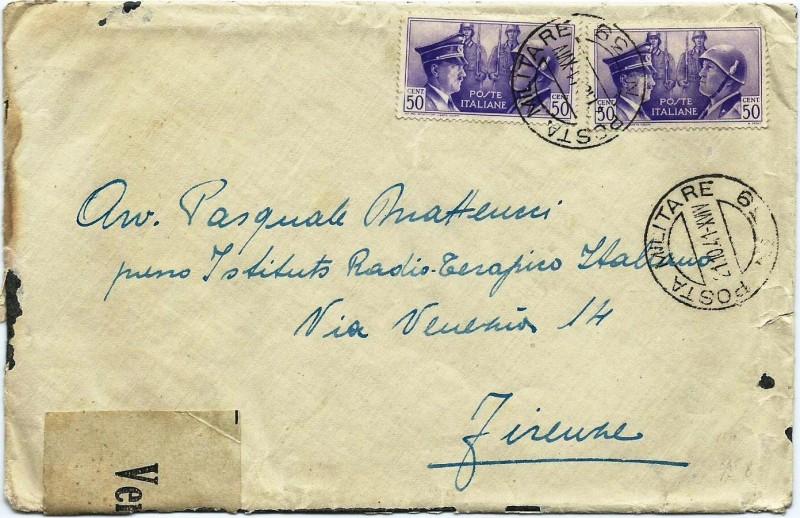 CENT 50 POSTE ITALIANE 50
CENT 50 POSTE ITALIANE CENT 50
POSTA MILITARE
POSTA MILITARE
21.10.41.XIX
Avv. Pasquale Matteucci
presso Istituto Radio-Terapico Italiano
Via Venezia 14
Firenze
Ver